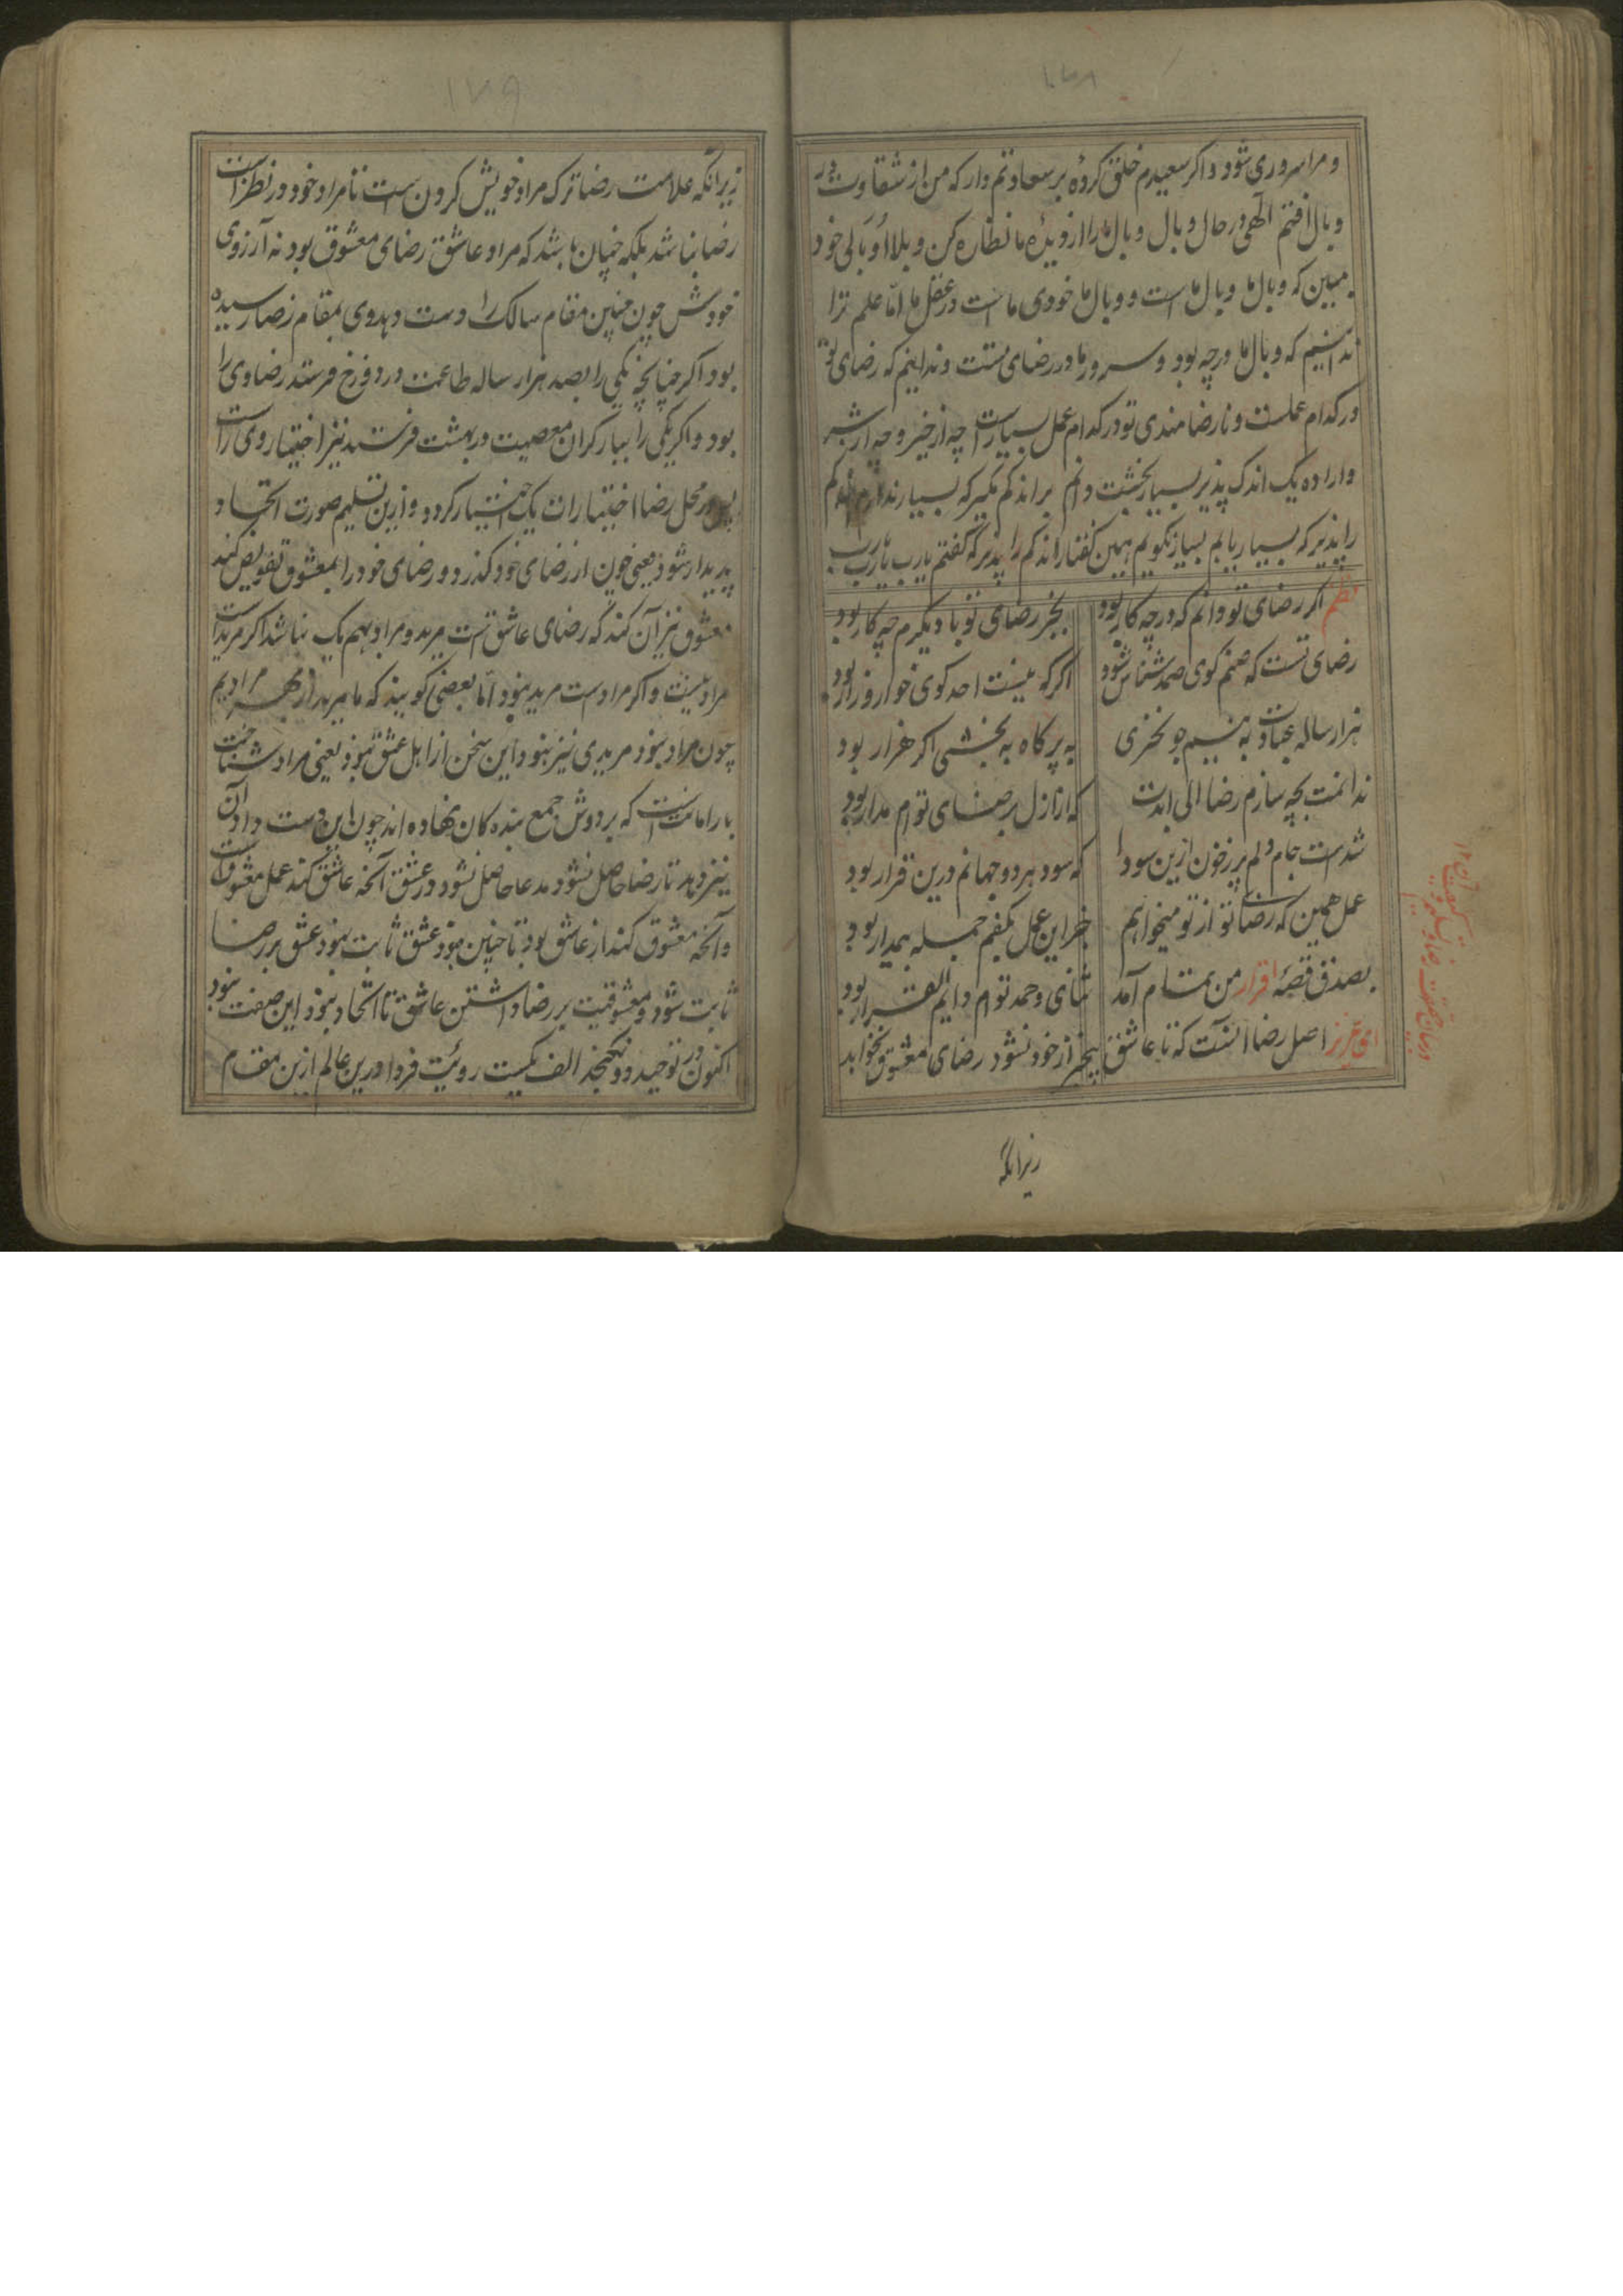 ۱۷۸
و مرا سروری شود و اگر سعیدم خلق کردهٔ بر سعادتم دار که من از شقاوت در
وبال افتم الهی در حال وبال وبال ما را از دیدهٔ ما نظاره کن و بلا او بالی خود
مبین که وبال ما وبال ماست و وبال ما خودی ماست در عقل ما اما علم ترا
ندانیم که وبال ما در چه بود و سرور ما در رضای تست و ندانیم که رضای تو
در کدام عملست و نارضامندی تو در کدام عمل بسیارست چه از خیر و چه از شر
و اراده یک اندک پذیر بسیار بخشت دانم بر اندکم مگیر که بسیار ندارم اندکم
را پذیر که بسیار یابم بسیار نگویم همین گفتار اندکم را پذیر که گفتم یارب یارب یارب
نظم اگر رضای تو دانم که در چه کار بود بجز رضای تو با دیگرم چه کار بود
رضای تست که صنم گوی صمد شناس شود اگر که نیست احد گوی خوار و زار بود
هزار ساله عبادت به نیم جو نخری به پر کاه به بخشی اگر هزار بود
ندانمت بچه سازم رضا الی ابدت که از ازل برضای توام مدار بود
شدست جام دلم پر ز خون ازین سودا که سود هر دو جهانم درین قرار بود
عمل همین که رضای تو از تو میخواهم جز این عمل بکفم جمله بیمدار بود
بصدق قصهٔ اقرار من تمام آمد ثنای و حمد توام دایم القرار بود
ای عزیز اصل رضا آنست که تا عاشق بیخبر از خود نشود رضای معشوق نخواهد
زیرانکه
۱۷۹
زیرانکه علامت رضا ترک مراد خویش کردن است تا مراد خود در نظر است
رضا نباشد بلکه چنان باشد که مراد عاشق رضای معشوق بود نه آرزوی
خودش چون چنین مقام سالک را دست دهد وی بمقام رضا رسیده
بود اگر چنانچه یکی را بصد هزار ساله طاعت در دوزخ فرستد رضا وی را
بود و اگر یکی را ببار گران معصیت در بهشت فرستد نیز اختیار وی راست
پس در محل رضا اختیارات یک اختیار گردد و ازین تسلیم صورت اتحاد
پدیدار شود یعنی چون از رضای خود گذرد و رضای خود را بمعشوق تفویض کند
معشوق نیز آن کند که رضای عاشق است مرید و مراد بهم یک نباشد اگر مریدست
مراد نیست و اگر مرادست مرید نبود اما بعضی گویند که ما مرید از بهر مرادیم
چون مراد نبود مریدی نیز نبود این سخن از اهل عشق نبود یعنی مراد شناخت
بار امانتست که بر دوش جمع بنده کان نهاده اند چون این دست داد آن
نیز دهد تا رضا حاصل نشود مدعا حاصل نشود در عشق آنچه عاشق کند عمل معشوقست
و آنچه معشوق کند از عاشق بود تا چنین نبود عشق ثابت نبود عشق بر رضا
ثابت شود و معشوقیت بر رضا داشتن عاشق تا اتحاد نبود این صفت نبود
اکنون در توحید دو نگنجد الف یکیست رویت فردا درین عالم ازین مقام